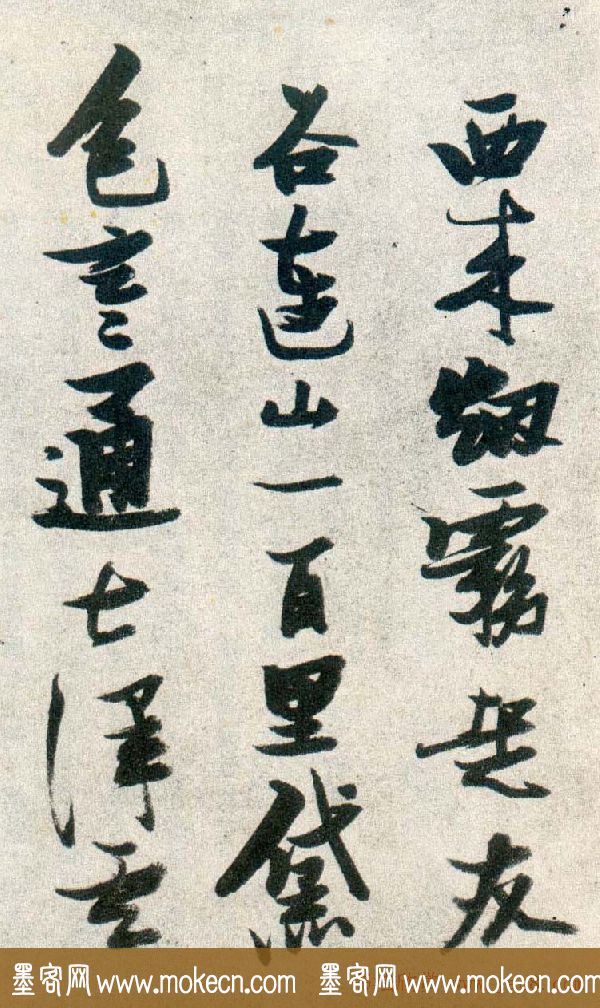 西來霧友
谷連山一百里黛
色通七澤
墨客网 www.mokecn.com 墨客网 www.mokecn.com